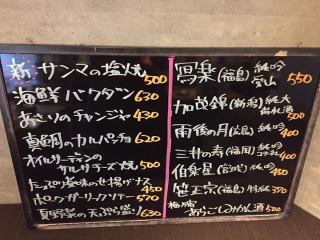 新 サンマの塩焼 500
海鮮バクダン 630
あさりのチャンジャ 430
真鯛のカルパッチョ 620
オイルサーディンの
サルサチーズ焼 500
たっぷり薬味のせ揚げナス 450
ポークガーリックソテー 570
夏野菜の天ぷら盛り 630
冩楽(福島) 純吟 愛山 550
加茂錦(新潟) 純大 荷札酒 500
雨後の月(広島) 純吟 400
三井の寿(福岡) 純吟 400
伯楽星(宮城) 純吟 450
笹正宗(福島) 特純 370
梅乃宿
あらごしみかん酒 500